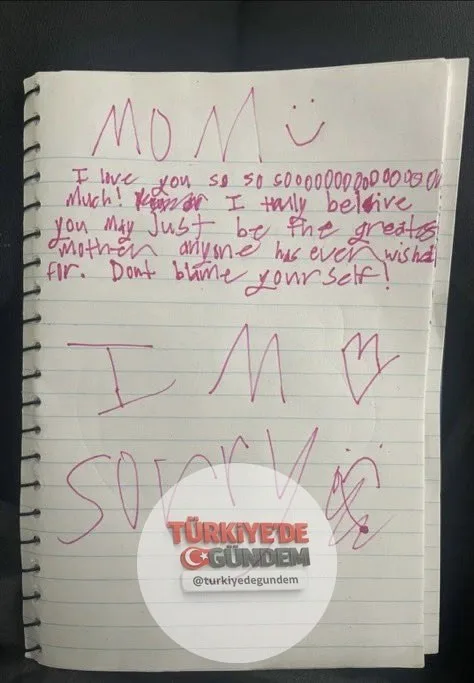 MOM :)
I love you so so sooooooooooooooo
much! I truly beleive
you may just be the greatest
mother anyone has ever wished
for. Dont blame yourself!
I M
SORRY
TÜRKİYE'DE
GÜNDEM
@turkiyedegundem